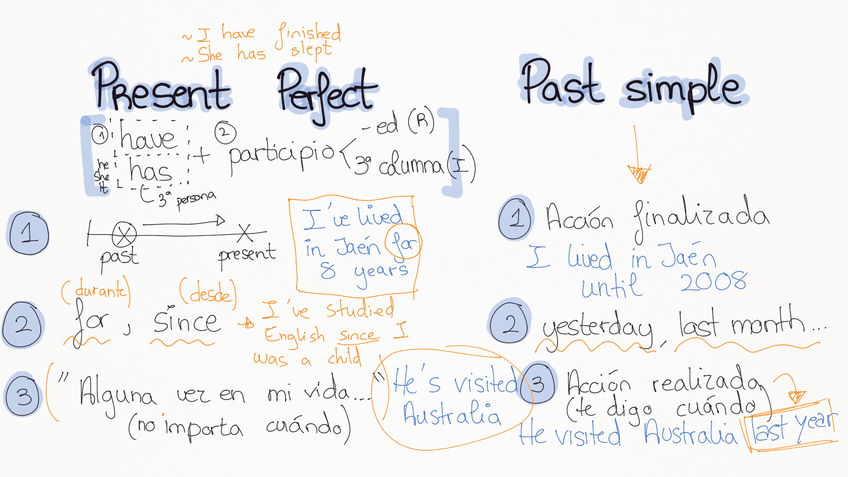 ~ I have finished
~ She has slept
Present Perfect
① have
he she it has
(3ª persona
+ ② participio
-ed (R)
3ª columna (I)
1
past present
I've lived
in Jaén for
8 years
(durante) (desde)
2 for, since
I've studied
English since I
was a child
3 ("Alguna vez en mi vida..."
(no importa cuándo)
He's visited
Australia
Past simple
1 Acción finalizada
I lived in Jaén
until 2008
2 yesterday, last month...
3 Acción realizada
(te digo cuándo)
He visited Australia last year